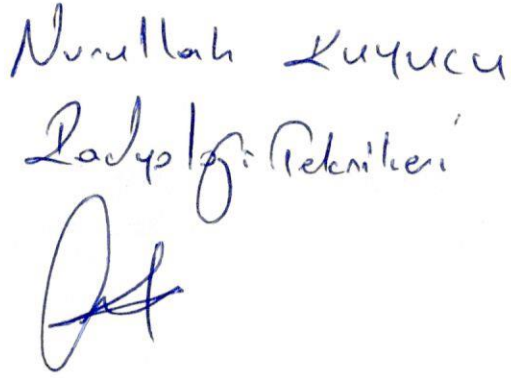 Nurullah Kuyucu
Radyoloji Teknikeri